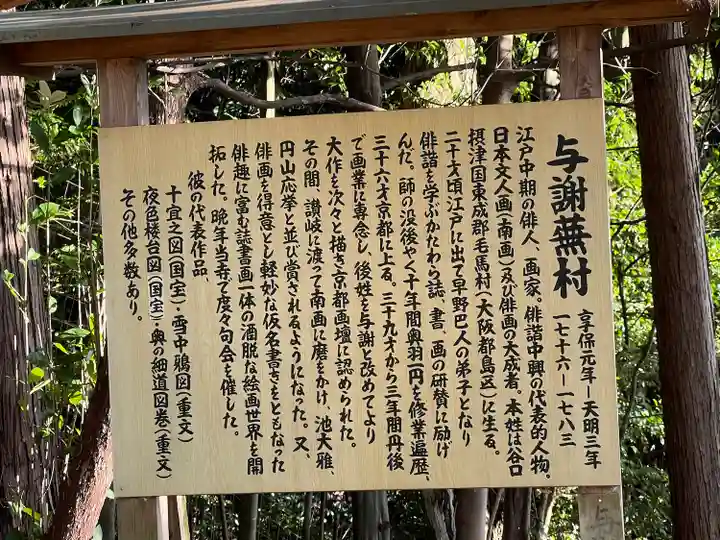 与謝蕪村
享保元年ー天明三年
一七十六ー一七八三
江戸中期の俳人、画家。俳諧中興の代表的人物、
日本文人画(南画)及び俳画の大成者、本姓は谷口
摂津国東成郡毛馬村(大阪都島区)に生る。
二十才頃江戸に出て早野巴人の弟子となり
俳諧を学ぶかたわら誌、書、画の研賛に励げ
んだ。師の没後やく十年間奥羽一円を修業遍歴、
三十六才京都に上る。三十九才から三年間丹後
で画業に専念し、後姓を与謝と改めてより
大作を次々と描き京都画壇に認められた。
その間、讃岐に渡って南画に磨をかけ、池大雅、
円山応挙と並び賞されるようになった。又、
俳画を得意とし軽妙な仮名書きをともなった
俳趣に富む誌書画一体の洒脱な絵画世界を開
拓した。晩年当寺で度々句会を催した。
彼の代表作品、
十宜之図(国宝)・雪中鴉図(重文)
夜色楼台図(国宝)・奥の細道図巻(重文)
その他多数あり。